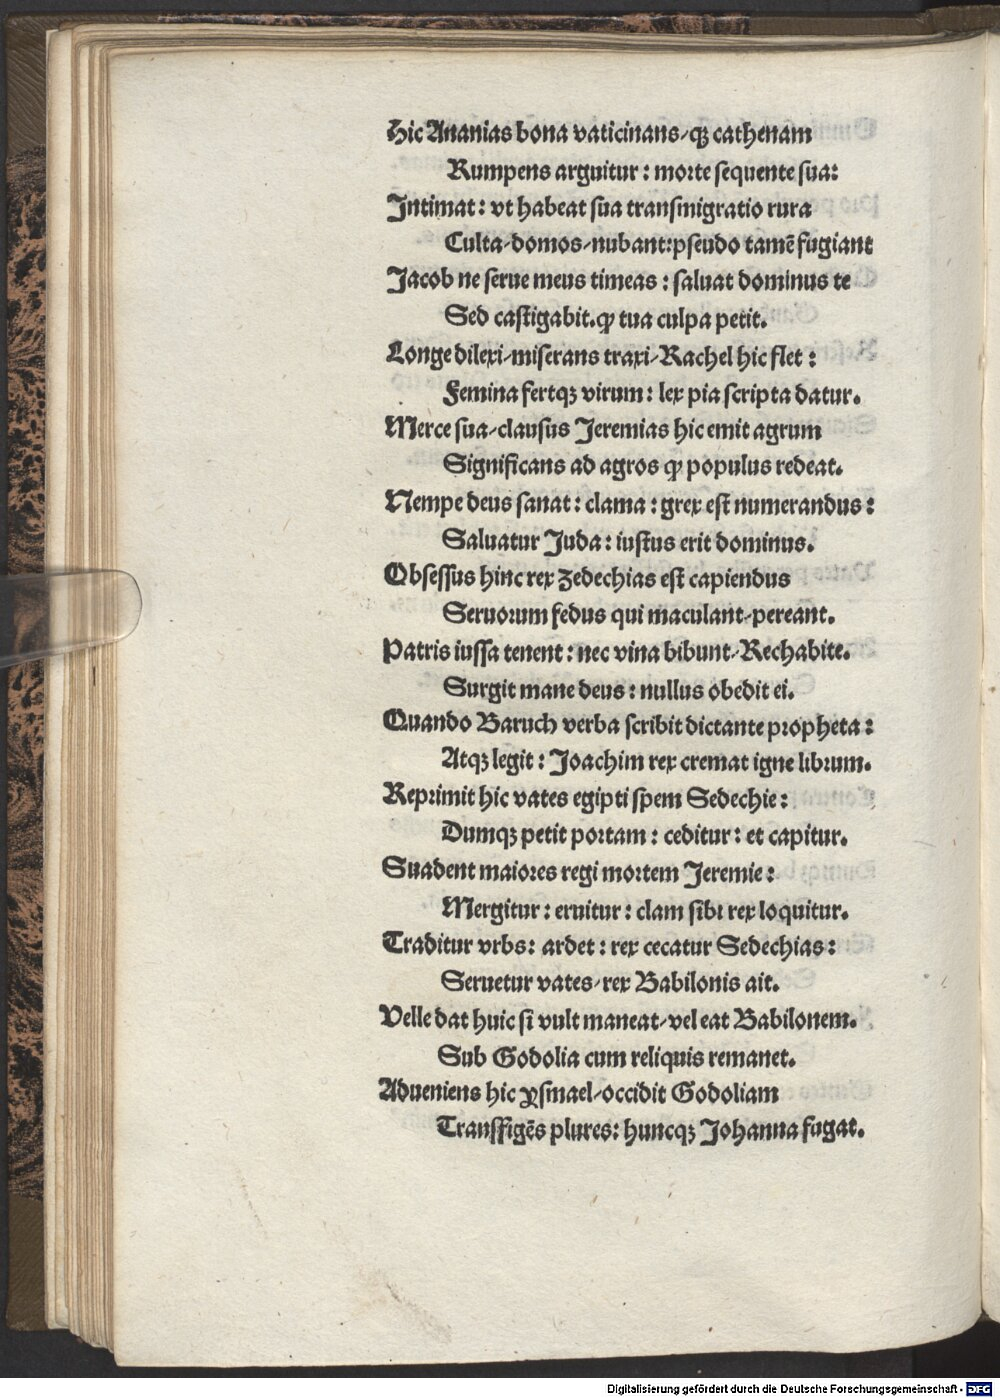 Hic Ananias bona vaticinans/qꝫ cathenam
Rumpens arguitur : morte sequente sua:
Intimat : vt habeat sua transmigratio rura
Culta/domos/nubant:pseudo tamē fugiant
Jacob ne serue meus timeas : saluat dominus te
Sed castigabit.ꝙ tua culpa petit.
Longe dilexi/miserans traxi/Rachel hic flet :
Femina fertqꝫ virum : lex pia scripta datur.
Merce sua/clausus Jeremias hic emit agrum
Significans ad agros ꝙ populus redeat.
Nempe deus sanat : clama : grex est numerandus :
Saluatur Juda : iustus erit dominus.
Obsessus hinc rex Zedechias est capiendus
Seruorum fedus qui maculant/pereant.
Patris iussa tenent : nec vina bibunt/Rechabite.
Surgit mane deus : nullus obedit ei.
Quando Baruch verba scribit dictante propheta :
Atqꝫ legit : Joachim rex cremat igne librum.
Reprimit hic vates egipti spem Sedechie :
Dumqꝫ petit portam : ceditur : et capitur.
Suadent maiores regi mortem Jeremie :
Mergitur : eruitur : clam sibi rex loquitur.
Traditur vrbs : ardet : rex cecatur Sedechias :
Seruetur vates/rex Babilonis ait.
Velle dat huic si vult maneat/vel eat Babilonem.
Sub Godolia cum reliquis remanet.
Adueniens hic Ysmael/occidit Godoliam
Transfigēs plures: huncqꝫ Johanna fugat.
Digitalisierung gefördert durch die Deutsche Forschungsgemeinschaft - DFG